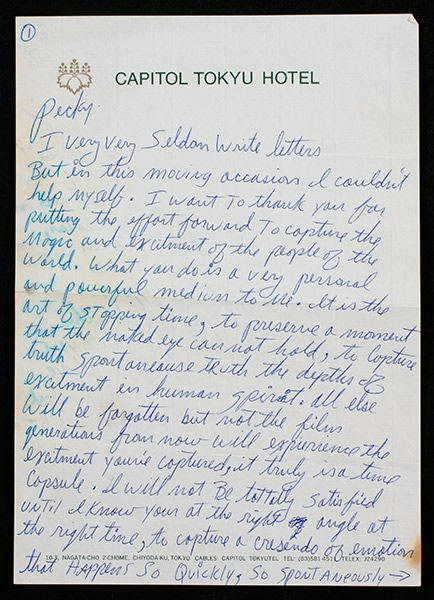 1
CAPITOL TOKYU HOTEL
Pecky
I very very Seldon Write letters
But in this moving occasion I couldn't
help myself. I want To thank you for
putting the effort forward To capture the
Magic and excitment of the people of the
World. What you do is a very personal
and powerful medium to me. It is the
art of stopping time, to preserve a moment
that the naked eye can not hold, to capture
truth spontaneouse truth the depths of
excitment in human spirit. all else
Will be forgotten but not the film
generations from now will experience the
excitment you've captured, it truly is a time
Capsule. I will not Be totally satisfied
until I know your at the right angle at
the right time, to capture a crasendo of emotion
10-3, NAGATA-CHO 2-CHOME, CHIYODA-KU, TOKYO CABLES: CAPITOL TOKYUTEL TEL: (03)581-4511 TELEX: J24290
that Happens So Quickly, So Spontaneously →